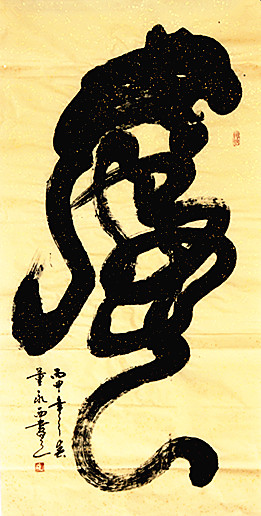 虎
丙申年之春
董永西书